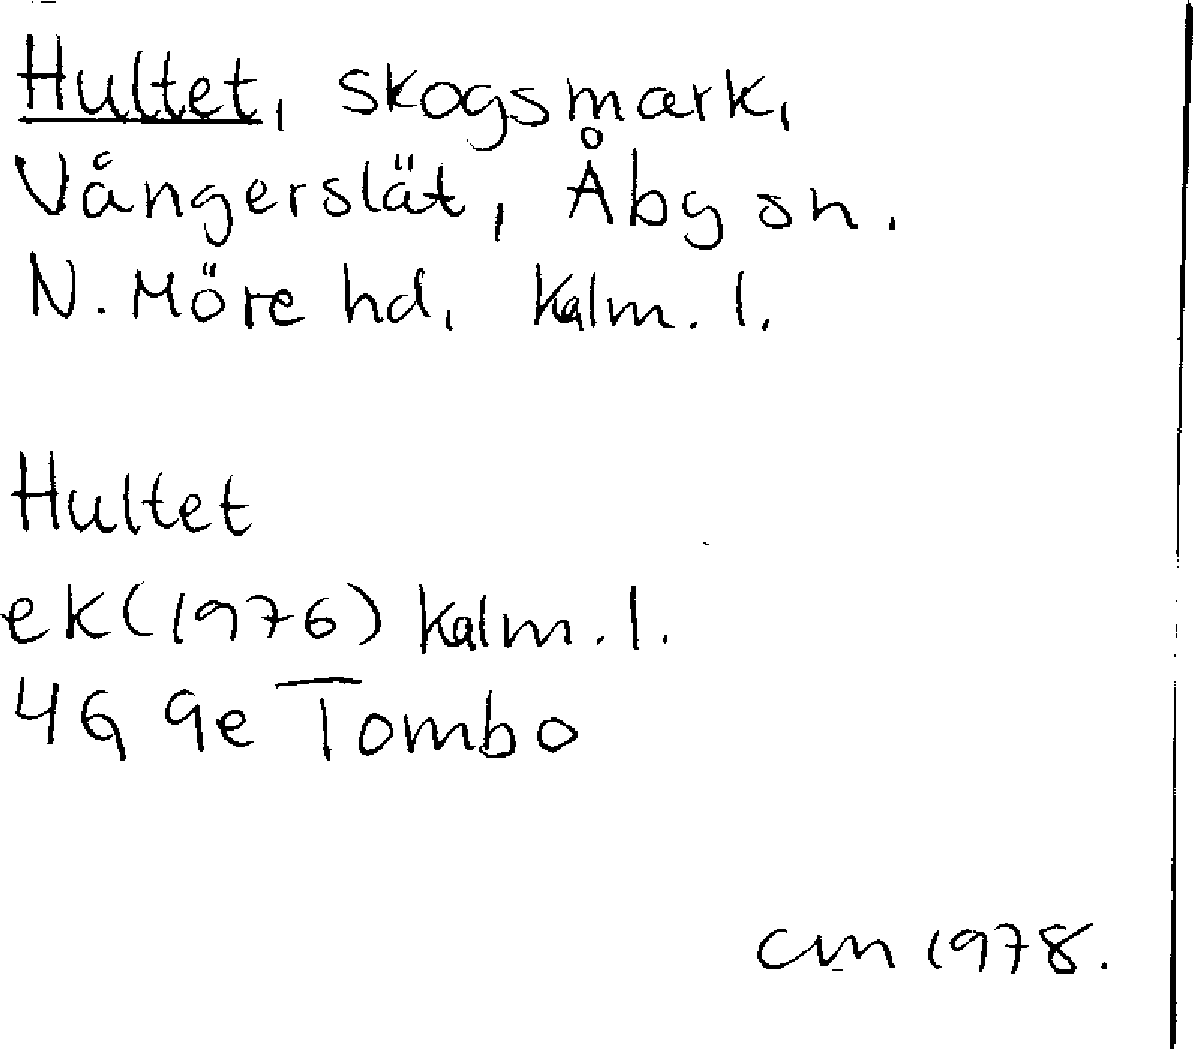 Hultet, skogsmark,
Vångerslät, Åby sn.
N. Möre hd, Kalm. l.
Hultet
ek (1976) Kalm. l.
4G 9e Tombo
cm 1978.